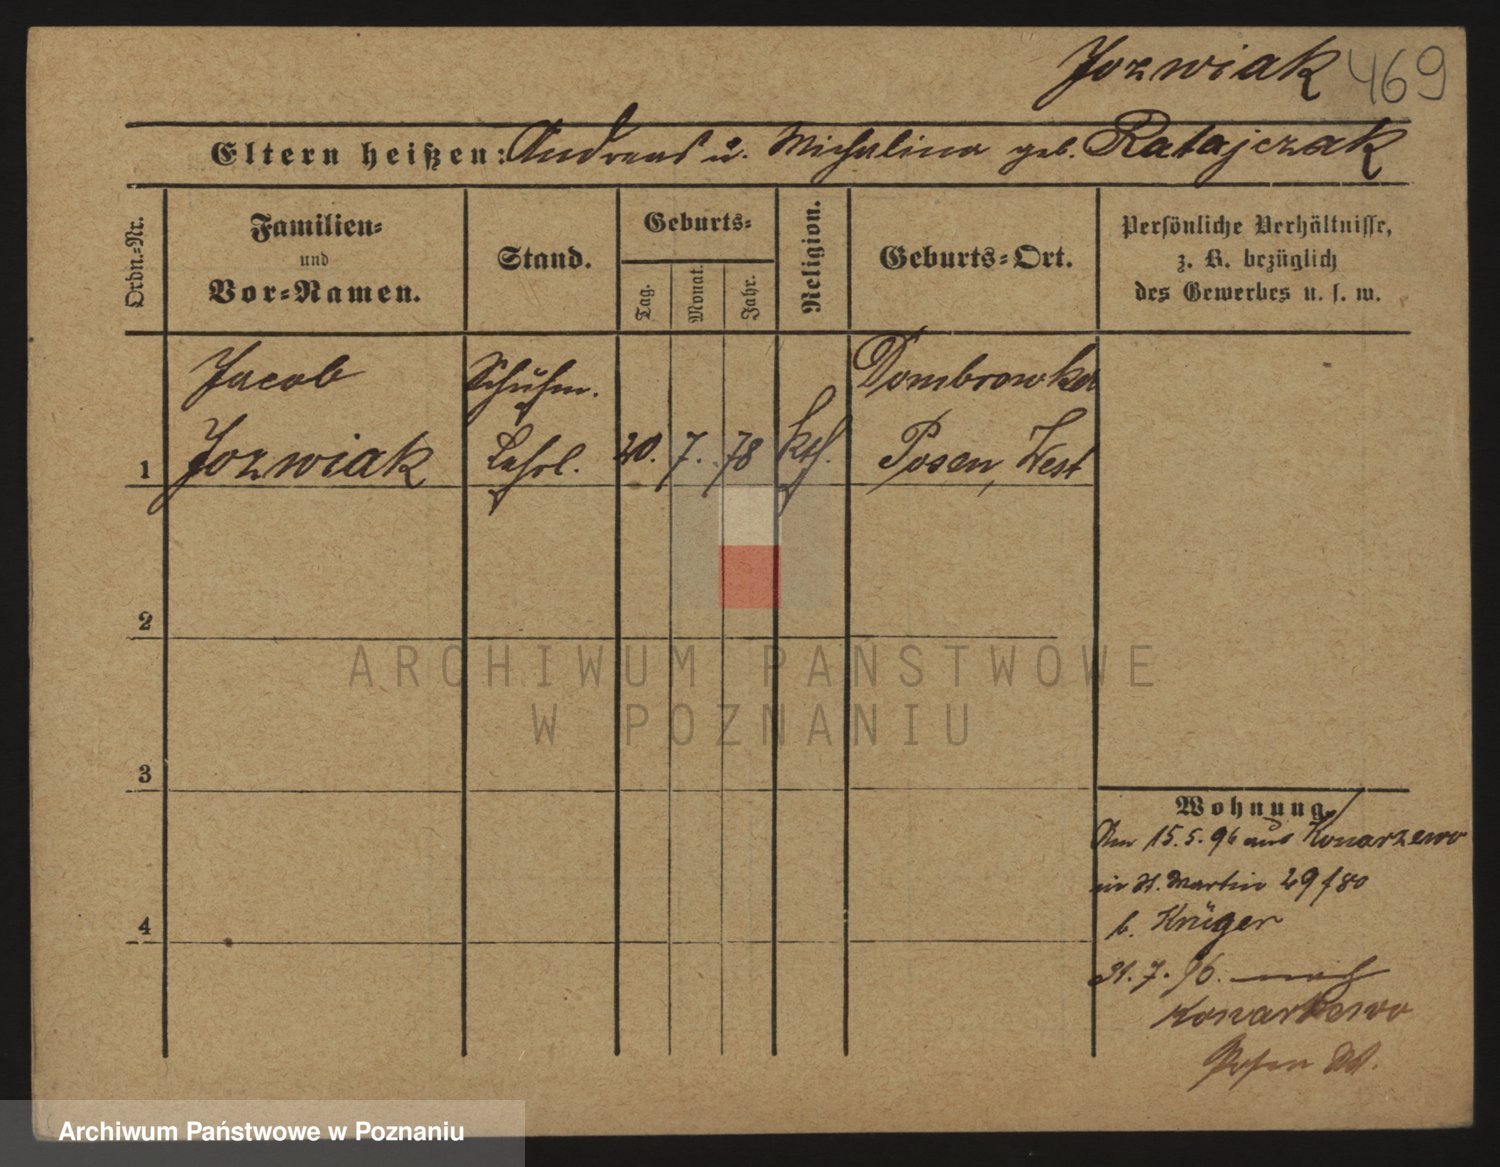 Jozwiak 469
Eltern heißen: Andreas u. Michalina geb. Ratajczak
Ordn.-Nr.
Familien-
und
Vor-Namen.
Stand.
Geburts-
Tag.
Monat.
Jahr.
Religion.
Geburts-Ort.
Persönliche Verhältnisse,
z. B. bezüglich
des Gewerbes u. s. w.
Jacob
Schuhm.
Dombrowka
1 Jozwiak Lehrl. 20. 7. 78 kth. Posen, West
2
ARCHIWUM PAŃSTWOWE
W POZNANIU
3
Wohnung.
Am 15.5.96 aus Konarzewo
in St. Martin 29/80
4
b. Krüger
31.7.96. nach
Konarzewo
Posen
Archiwum Państwowe w Poznaniu